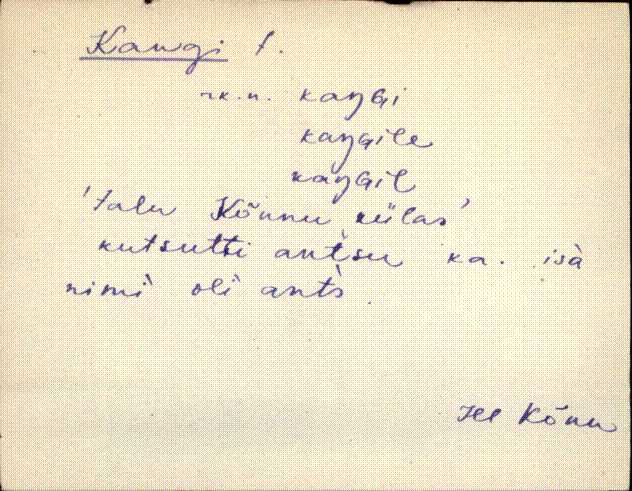 Kangi t.
rk.n. kaŋGi
kaŋGile
kaŋGil
'talu Kõnnu külas'
kutsutti antsu ka. isà
nimì oli ants
Hel Kõnnu